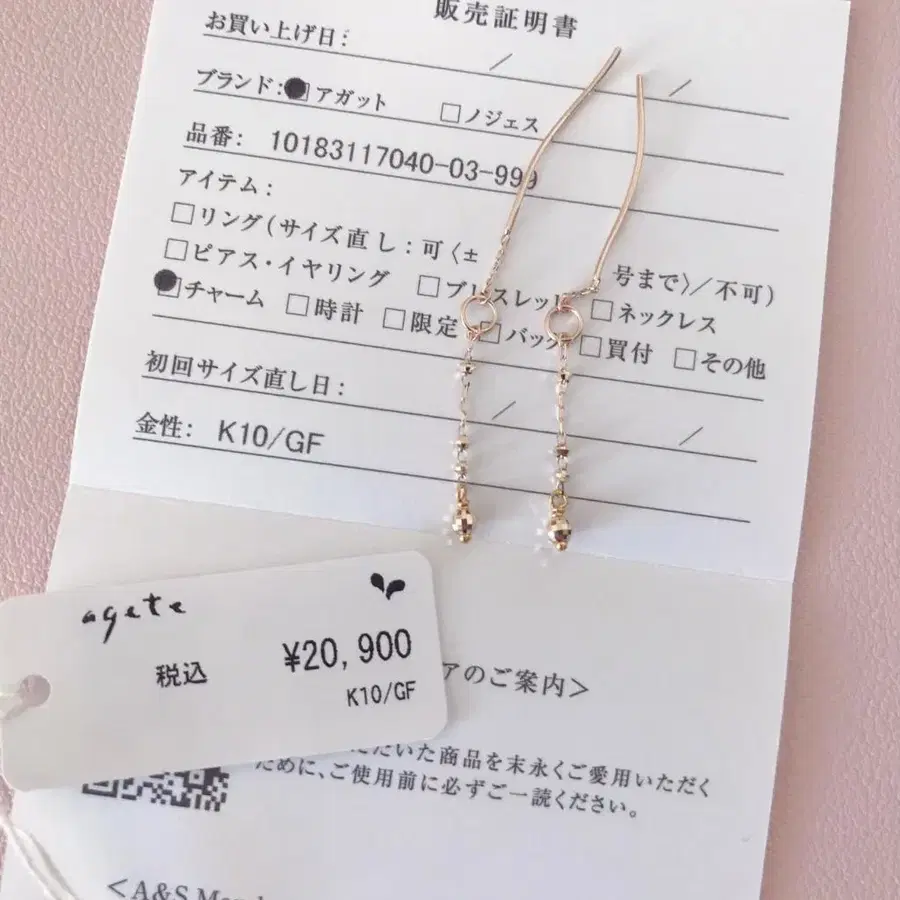 販売証明書
お買い上げ日: / /
ブランド: アガット □ノジェス
品番: 10183117040-03-999
アイテム:
□リング(サイズ直し:可〈± 号まで〉/不可)
□ピアス・イヤリング □ブレスレット □ネックレス
チャーム □時計 □限定 □バッグ □買付 □その他
初回サイズ直し日: / /
金性: K10/GF
agete
税込 ¥20,900
K10/GF
アのご案内>
ただいた商品を末永くご愛用いただく
ために、ご使用前に必ずご一読ください。
<A&S